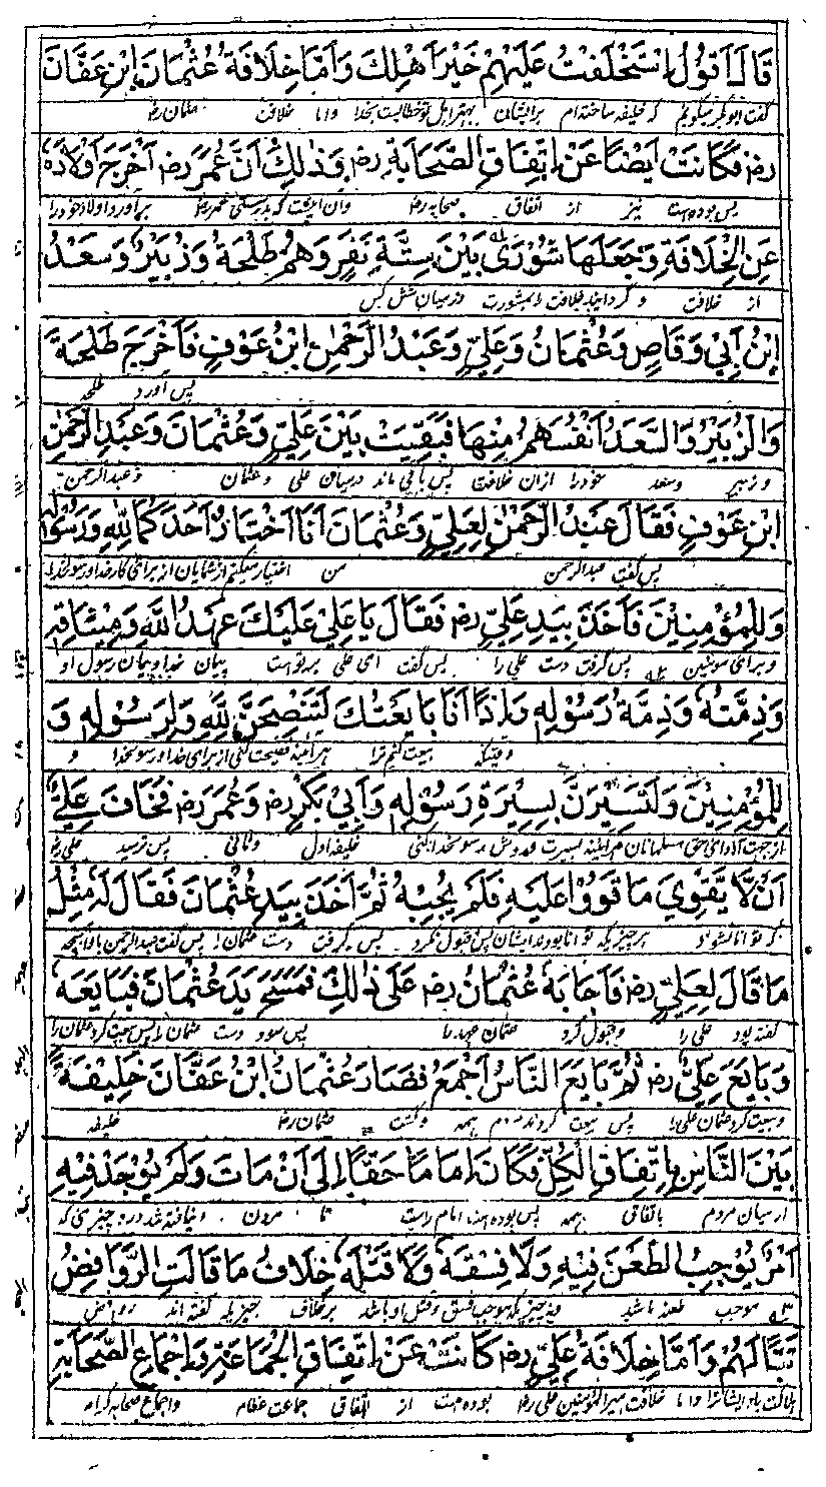 قَالَ اَقُوْلُ اِسْتَخْلَفْتُ عَلَيْهِمْ خَيْرَ اَهْلِكَ وَاَمَّا خِلَافَةُ عُثْمَانَ ابْنِ عَفَّانَ
گفت ابوبکر میگویم که خلیفه ساخته‌ام برایشان بهتر اهل تو خطاب است بخدا واما خلافت عثمان رض
رض فَكَانَتْ اَيْضًا عَنْ اِتِّفَاقِ الصَّحَابَةِ رض وَذٰلِكَ اَنَّ عُمَرَ رض اَخْرَجَ اَوْلَادَهٗ
پس بوده است نیز از اتفاق صحابه رض وآن اینست که بدرستی عمر رض برآورد اولاد خود را
عَنِ الْخِلَافَةِ وَجَعَلَهَا شُوْرٰى بَيْنَ سِتَّةِ نَفَرٍ وَهُمْ طَلْحَةُ وَزُبَيْرُ وَسَعْدُ
از خلافت و گردانید خلافت را بمشورت درمیان شش کس
ابْنُ اَبِيْ وَقَاصٍ وَعُثْمَانُ وَعَلِيٌّ وَعَبْدُ الرَّحْمٰنِ ابْنُ عَوْفٍ فَاَخْرَجَ طَلْحَةُ
پس آورد طلحه
وَالزُّبَيْرُ وَالسَّعَدُ اَنْفُسَهُمْ مِنْهَا فَبَقِيَتْ بَيْنَ عَلِيٍّ وَعُثْمَانَ وَعَبْدِ الرَّحْمٰنِ
و زبیر وسعد خود را ازان خلافت پس باقی ماند درمیان علی و عثمان و عبدالرحمن
ابْنِ عَوْفٍ فَقَالَ عَبْدُ الرَّحْمٰنِ لِعَلِيٍّ وَعُثْمَانَ اَنَا اَخْتَارُ اَحَدَكُمَا لِلّٰهِ وَرَسُوْلِهٖ
پس گفت عبدالرحمن من اختیار میکنم از شمایان از برای کار خدا و رسول خدا
وَلِلْمُؤْمِنِيْنَ فَاَخَذَ بِيَدِ عَلِيٍّ رض فَقَالَ يَا عَلِيُّ عَلَيْكَ عَهْدُ اللّٰهِ وَمِيْثَاقُهٗ
وبرای مومنین پس گرفت دست علی را پس گفت ای علی برتو است پیمان خدا و پیمان رسول او
وَذِمَّتُهٗ وَذِمَّةُ رَسُوْلِهٖ وَاِذَا اَنَا بَايَعْتُكَ لَتَنْصِحَنَّ لِلّٰهِ وَلِرَسُوْلِهٖ وَ
وقتیکه بیعت کنم ترا هر آئینه نصیحت کنی از برای خدا و رسول خدا و
لِلْمُؤْمِنِيْنَ وَلَتَسِيْرَنَّ بِسِيْرَةِ رَسُوْلِهٖ وَاَبِيْ بَكْرٍ رض وَعُمَرَ رض فَخَافَ عَلِيٌّ
از جهت ادای حق مسلمانان هر آئینه بسیرت رسول خدا کنی خلیفه اول وثانی پس ترسید علی رض
اَنْ لَّا يَقْوِيَ مَا قَوُوْا عَلَيْهِ فَلَمْ يُجِبْهُ ثُمَّ اَخَذَ بِيَدِ عُثْمَانَ فَقَالَ لَهٗ مِثْلَ
که توانا نشود بر چیزیکه توانا بودند ایشان پس قبول نکرد پس گرفت دست عثمان را پس گفت عبدالرحمن با او آنچه
مَا قَالَ لِعَلِيٍّ رض فَاَجَابَهٗ عُثْمَانُ رض عَلٰى ذٰلِكَ فَمَسَحَ يَدَ عُثْمَانَ فَبَايَعَهٗ
گفته بود علی را وقبول کرد عثمان عهد را پس سود دست عثمان را پس بیعت کرد عثمان را
وَبَايَعَ عَلِيٌّ رض ثُمَّ بَايَعَ النَّاسُ اَجْمَعُ فَصَارَ عُثْمَانُ ابْنُ عَفَّانَ خَلِيْفَةً
وبیعت کرد عثمان علی را پس بیعت کردند مردم همه وگشت عثمان رض خلیفه
بَيْنَ النَّاسِ بِاِتِّفَاقِ الْكُلِّ فَكَانَ اِمَامًا حَقًّا اِلٰى اَنْ مَاتَ وَلَمْ يُوْجَدْ فِيْهِ
درمیان مردم باتفاق همه پس بوده است امام راست تا مردن و یافته نشد درو چیزی که
اَمْرٌ يُوْجِبُ الطَّعْنَ فِيْهِ وَلَا فِسْقَهٗ وَلَا قَتْلَهٗ خِلَافُ مَا قَالَتِ الرَّوَافِضُ
موجب طعنه باشد ونه چیزیکه موجب فسق وقتل او باشد برخلاف چیزیکه گفته اند روافض
تَبًّا لَهُمْ وَاَمَّا خِلَافَةُ عَلِيٍّ رض كَانَتْ عَنْ اِتِّفَاقِ الْجُمَاعَةِ وَاِجْمَاعِ الصَّحَابَةِ
هلاکت باد ایشانرا واما خلافت امیرالمؤمنین علی رض بوده است از اتفاق جماعت عظام واجماع صحابه کرام